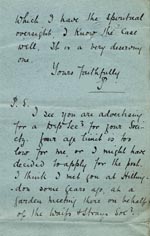 which I have the spiritual
oversight, I know the case
well. It is a very deserving
one.
Yours faithfully
P.S.
I see you are advertising
for a Dep. Sec. for your Soc-
iety. your age limit is too
low for me or I might have
decided to apply for the post.
I think I met you at Hilling-
don some years ago, at a
garden meeting there on behalf
of the Waifs & Strays Soc.